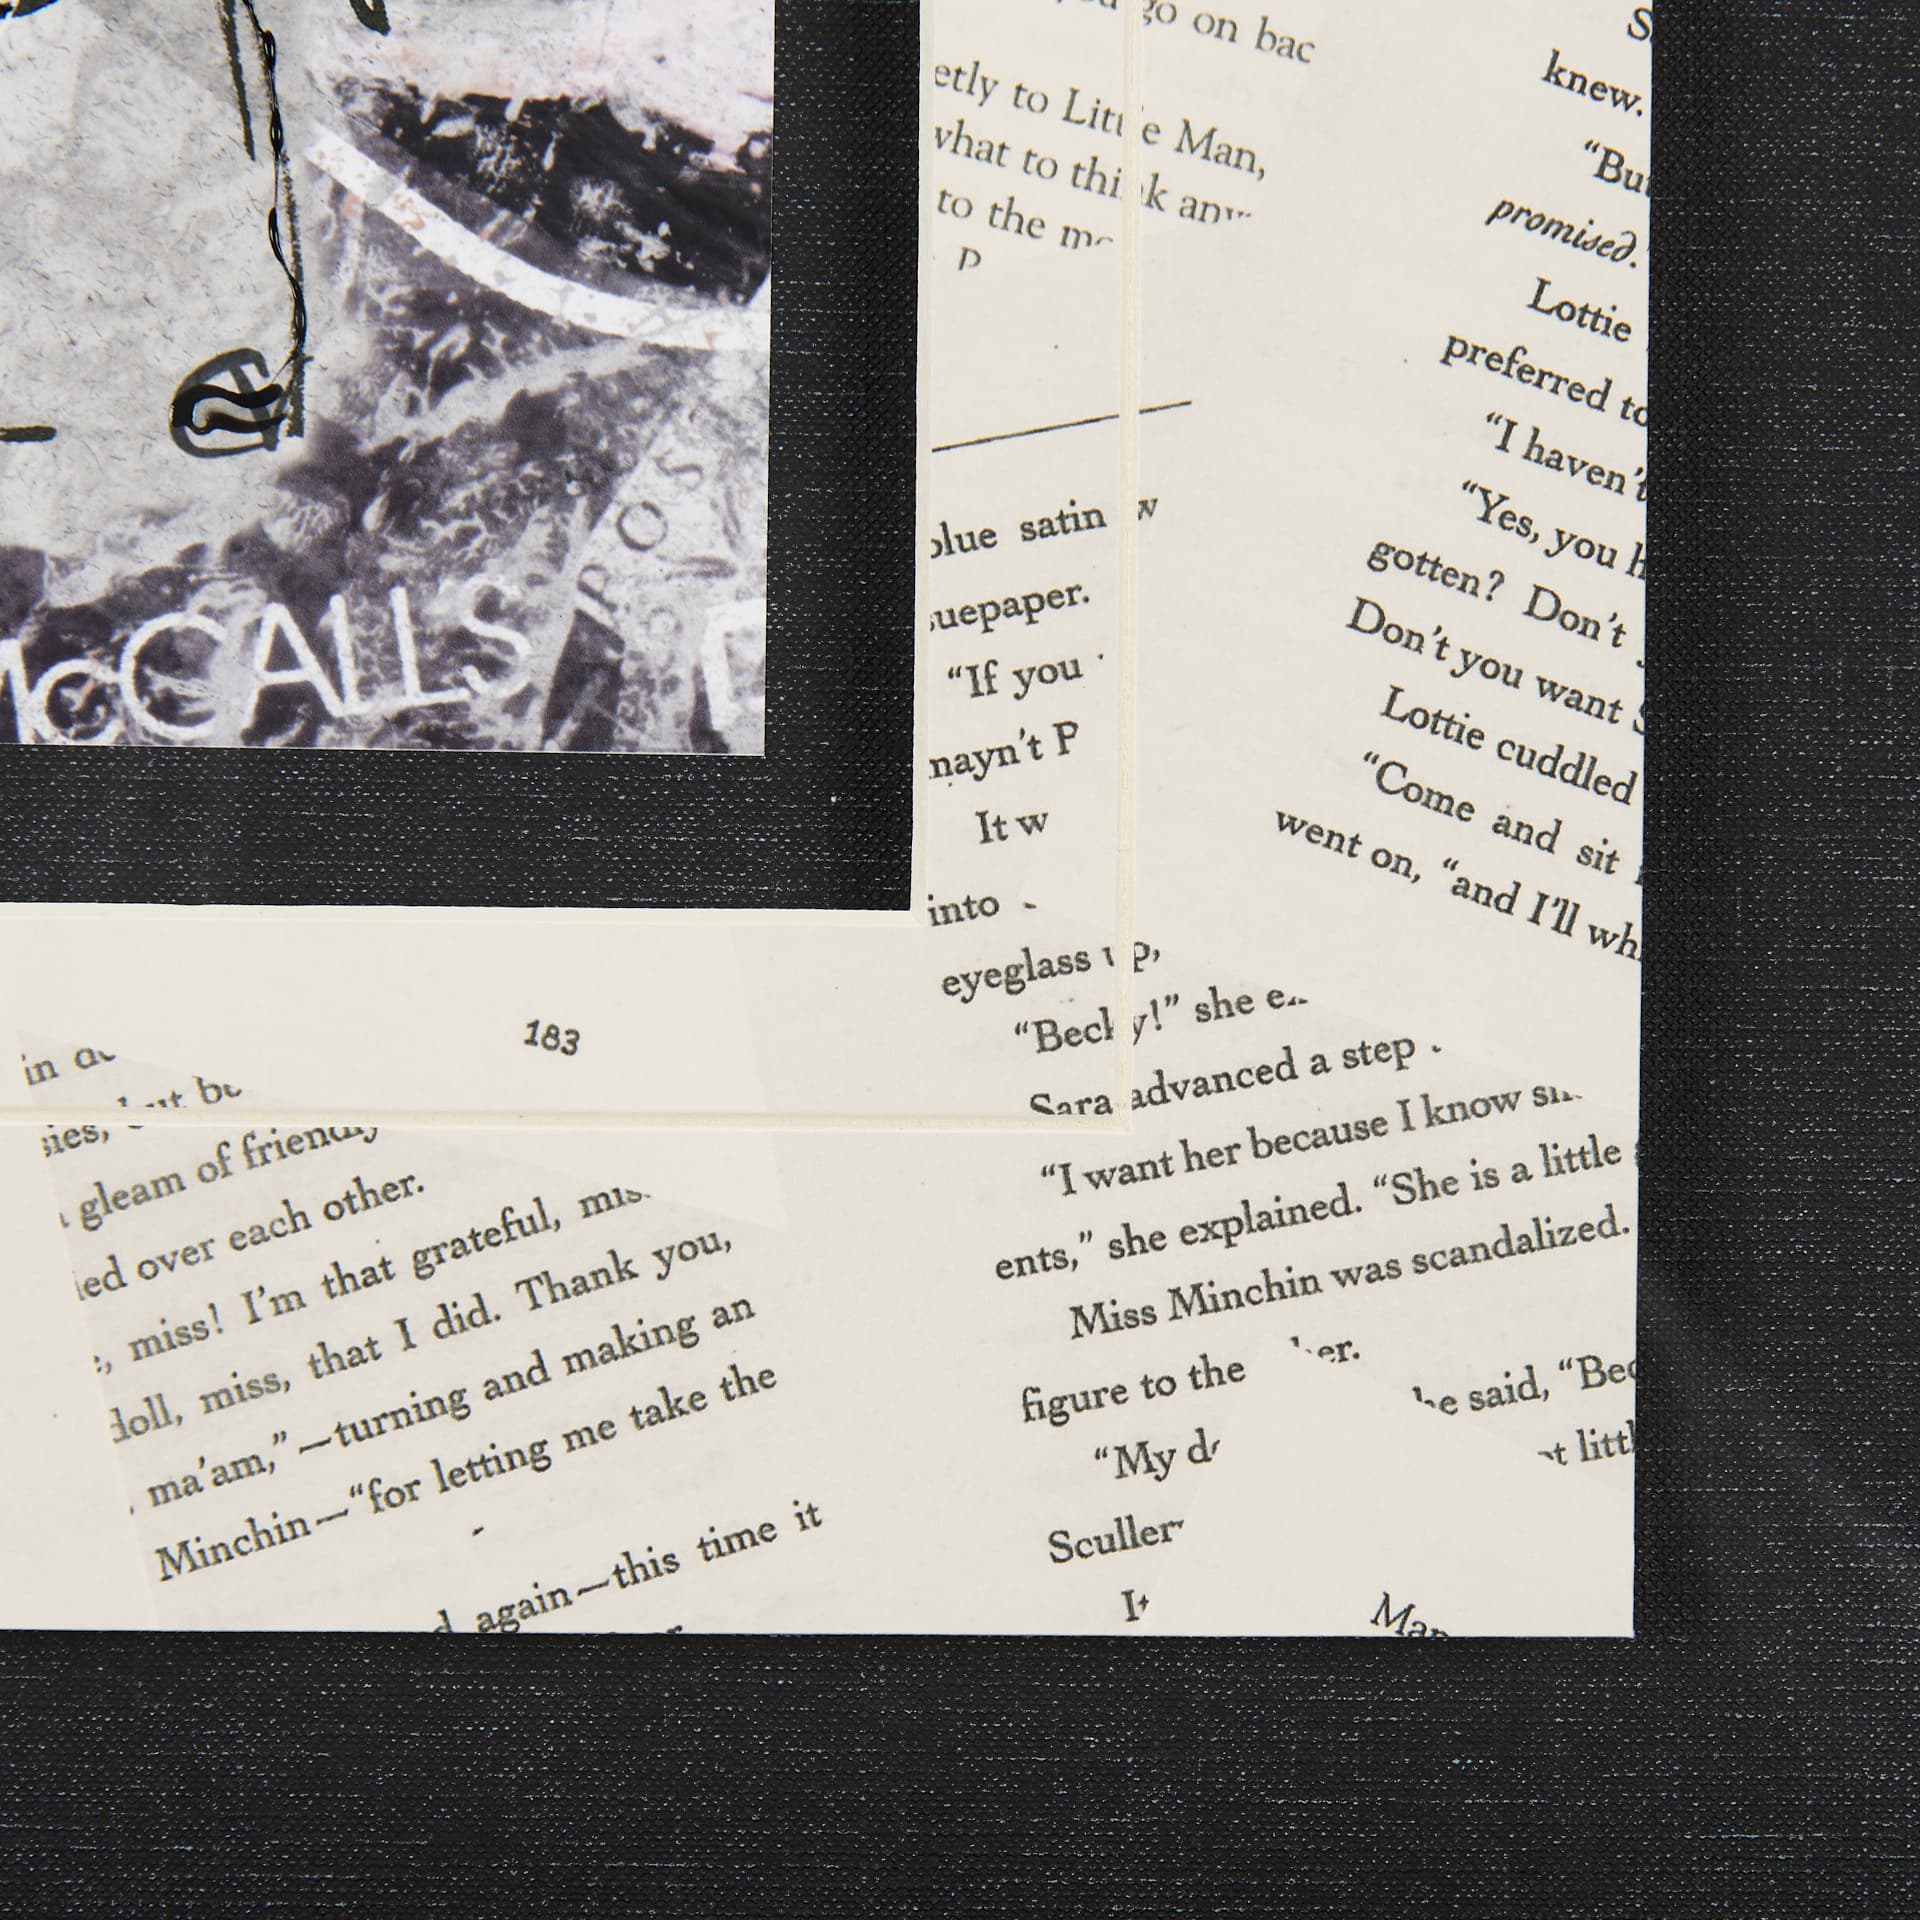 go on bac
etly to Little Man,
what to think any
to the
knew.
"But
promised.
Lottie
preferred to
"I haven't
"Yes, you h
gotten? Don't
Don't you want S
Lottie cuddled
"Come and sit
went on, "and I'll wh
blue satin w
suepaper.
"If you
mayn't P
It w
into
eyeglass up,
"Becky!" she e
Sara advanced a step
"I want her because I know
ents," she explained. "She is a little
Miss Minchin was scandalized.
figure to the
her.
he said, "Bec
"My
littl
Sculler
McCALLS
183
in
sies, but
gleam of friendly
led over each other.
miss! I'm that grateful, mis
doll, miss, that I did. Thank you,
ma'am,"—turning and making an
Minchin—"for letting me take the
again—this time it